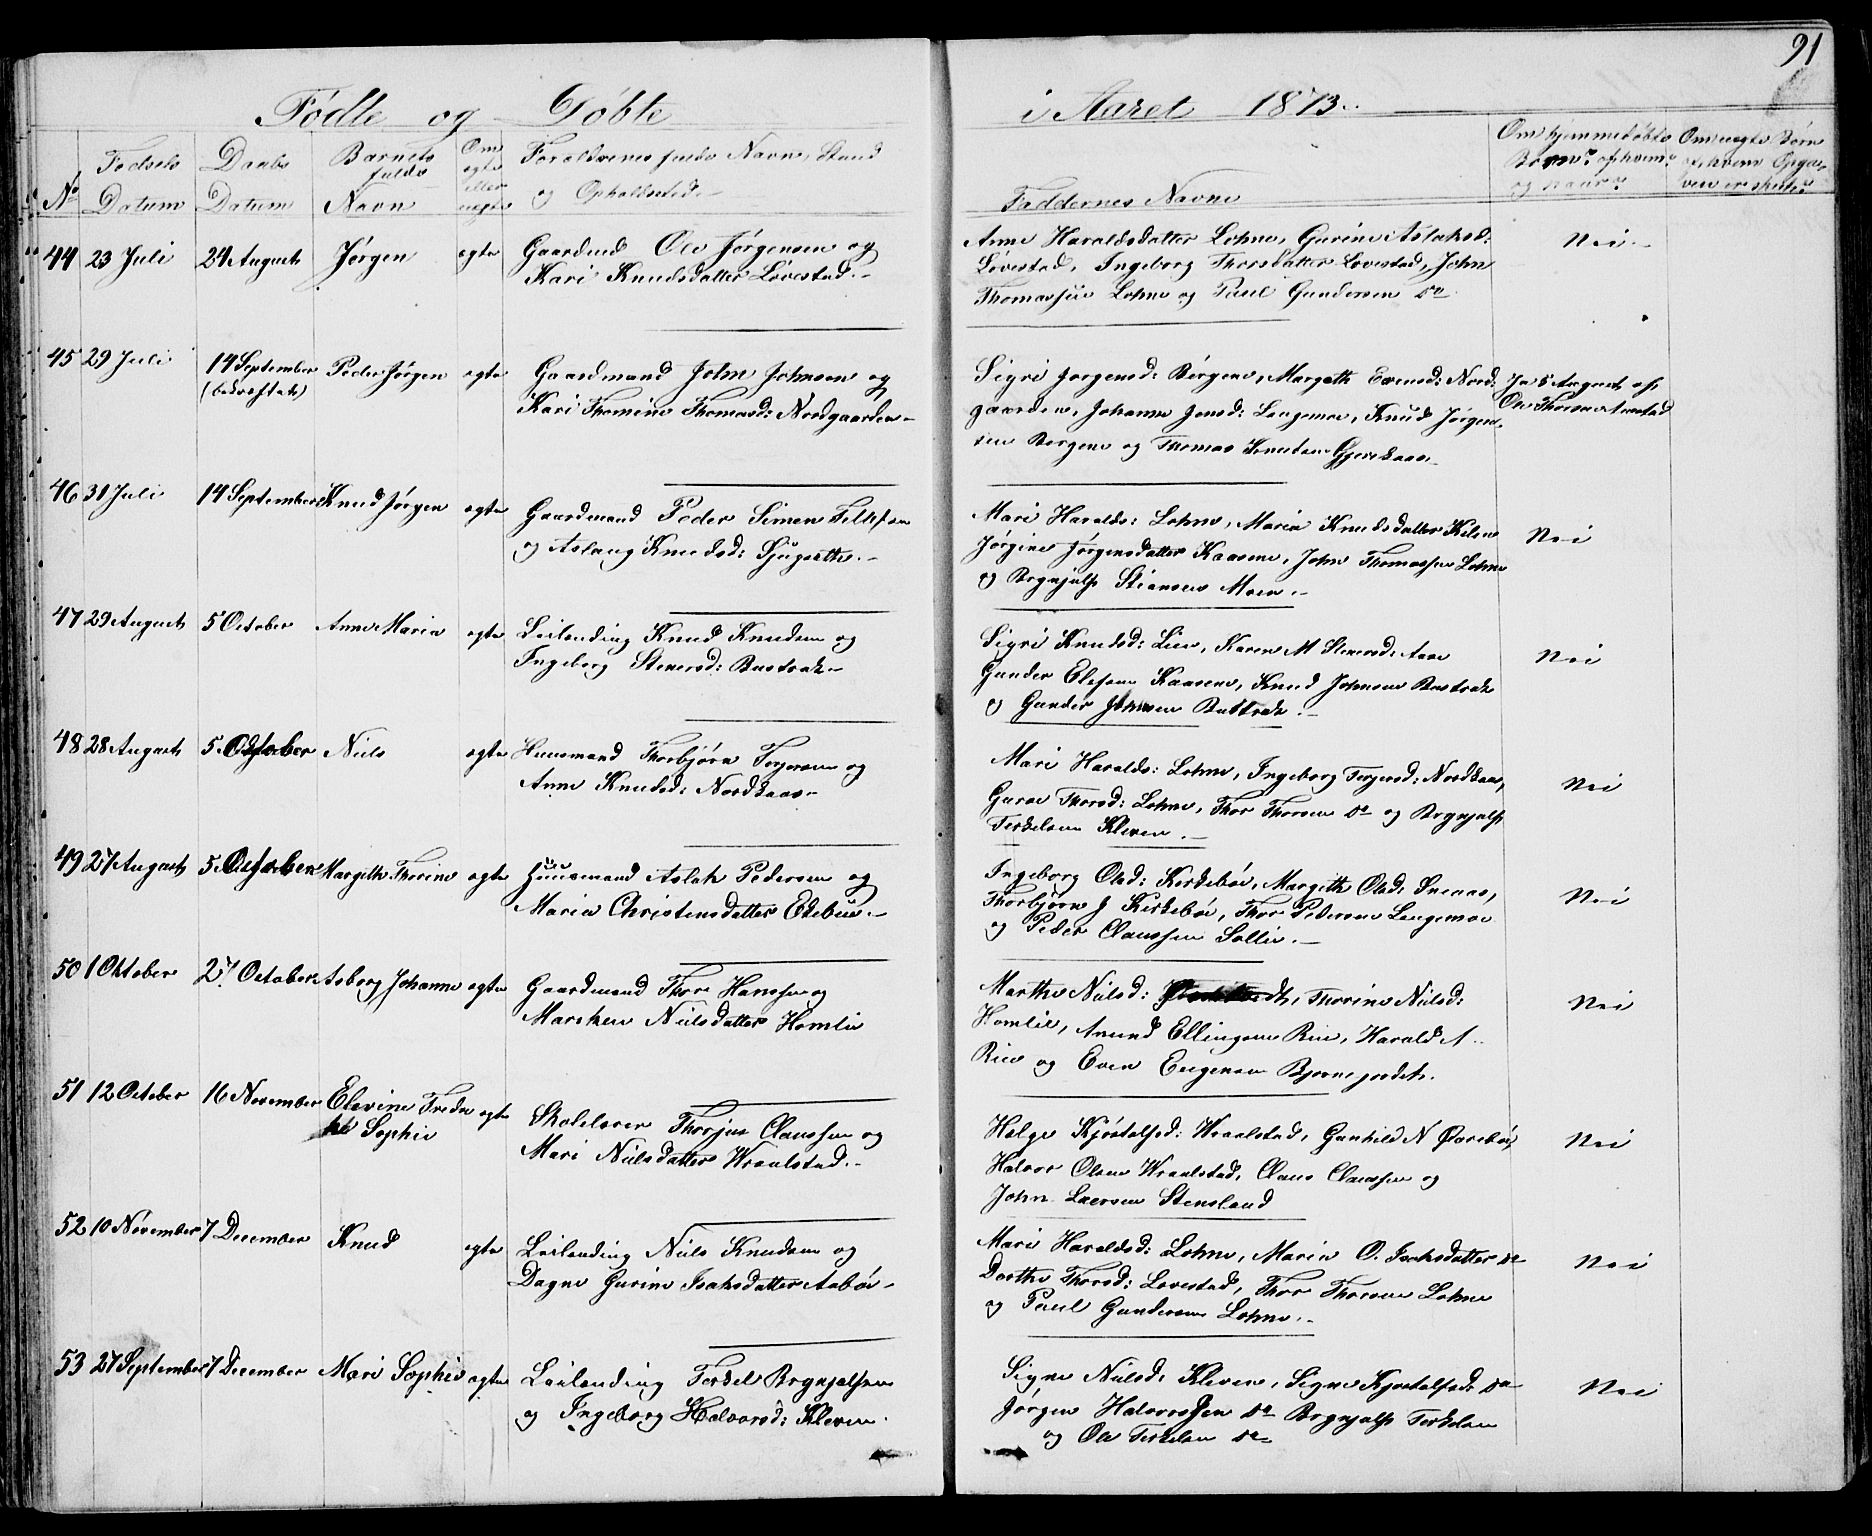 91
Fødte og Døbte i Aaret 1873.
No
Fødsels Datum
Daabs Datum
Barnets fulde Navn
Om ægte eller uægte
Forældrenes fulde Navne, Stand
og Opholdssted.
Faddernes Navne
Om hjemmedøbte
Børn: af hvem
og naar
Om uægte Børn
af hvem Opga-
ven er skeet
44 23 Juli 24 August Jørgen ægte Gaardmd Ole Jørgensen og
Kari Knudsdatter Lovestad.
Anne Haraldsdatter Lohne, Gurine Aslaksd:
Lovestad, Ingeborg Thorsdatter Lovestad, John
Thomassen Lohne og Paul Gundersen do
Nei
45 29 Juli 14 September Peder Jørgen ægte Gaardmand John Johnsen og
(bekræftet)
Kari Thomine Thomasd: Nordgaarden
Sigri Jørgensd: Borgene, Margith Evensd: Nord-
gaarden, Johanne Jonsd: Langemoe, Knud Jørgen-
sen Borgene og Thomas Knudsen
Ja 5 August af
Ole Thorsen
46 31 Juli 14 September Knud Jørgen ægte Gaardmand Peder Simon
og Aslaug Knudsd:
Mari Haralds: Lohne, Maria Knudsdatter Kilen
Jørgine Jørgensdatter Kaasene, John Thomassen Lohne
og Brynjulf Stiansen Moen.
Nei
47 29 August 5 October Anne Maria ægte Leilending Knud Knudsen og
Ingeborg Steersd: Bustrak
Sigri Knudsd: Lien, Karen M Steersd: Aase
Gunder Elefsen Kaasene, Knud Johnsen Bustrak
og Gunder Johnsen Bustrak.
Nei
48 28 August 5 October Niels ægte Huusmand Thorbjørn Terjesen og
Anne Knudsd: Nordkaas
Mari Haralds: Lohne, Ingeborg Terjesd: Nordkaas,
Guroe Thorsd: Lohne, Thor Thorsen do og Brynjulf
Terkelsen Kleven.
Nei
49 27 August 5 October Margith Thorine ægte Huusmand Aslak Pedersen og
Maria Christensdatter Ekebue.
Ingeborg Olsd: Kirkebøe, Margith Olsd: Sneaas,
Thorbjørn J Kirkebøe, Thor Pedersen Langemoe
og Peder Claussen Sollie.
Nei
50 1 Oktober 27 October Asborg Johanne ægte Gaardmand Thor Hanssen og
Marichen Nielsdatter Homlie
Marthe Nielsd: Thorine Nielsd:
Homlie, Amund Ellingsen Rue, Harald A
Rue og Even Evensen Bjornejordet.
Nei
51 12 October 16 November Elevine Fredri- ægte Skolelærer Thorjus Claussen og
ke Sophie
Mari Nielsdatter Wraalstad.
Helge Kjøstolfsd: Wraalstad, Gunhild N Øvrebøe,
Halvor Olsen Wraalstad, Claus Claussen og
John Larssen Stensland
Nei
52 10 November 7 December Knud ægte Leilending Niels Knudsen og
Dagne Gurine Isaksdatter Aabøe
Mari Haraldsd: Lohne, Maria O. Isaksdatter do
Dorthe Thorsd: Lovestad, Thor Thorsen Lohne
og Paul Gundersen Lohne.
Nei
53 27 September 7 December Mari Sophie ægte Leilending Terkel Brynjulfsen
og Ingeborg Halvorsd: Kleven.
Signe Nielsd: Kleven, Signe Kjøstolfsd: do
Jørgen Halvorssen do Brynjulf Terkelsen
og Ole Terkelsen do
Nei